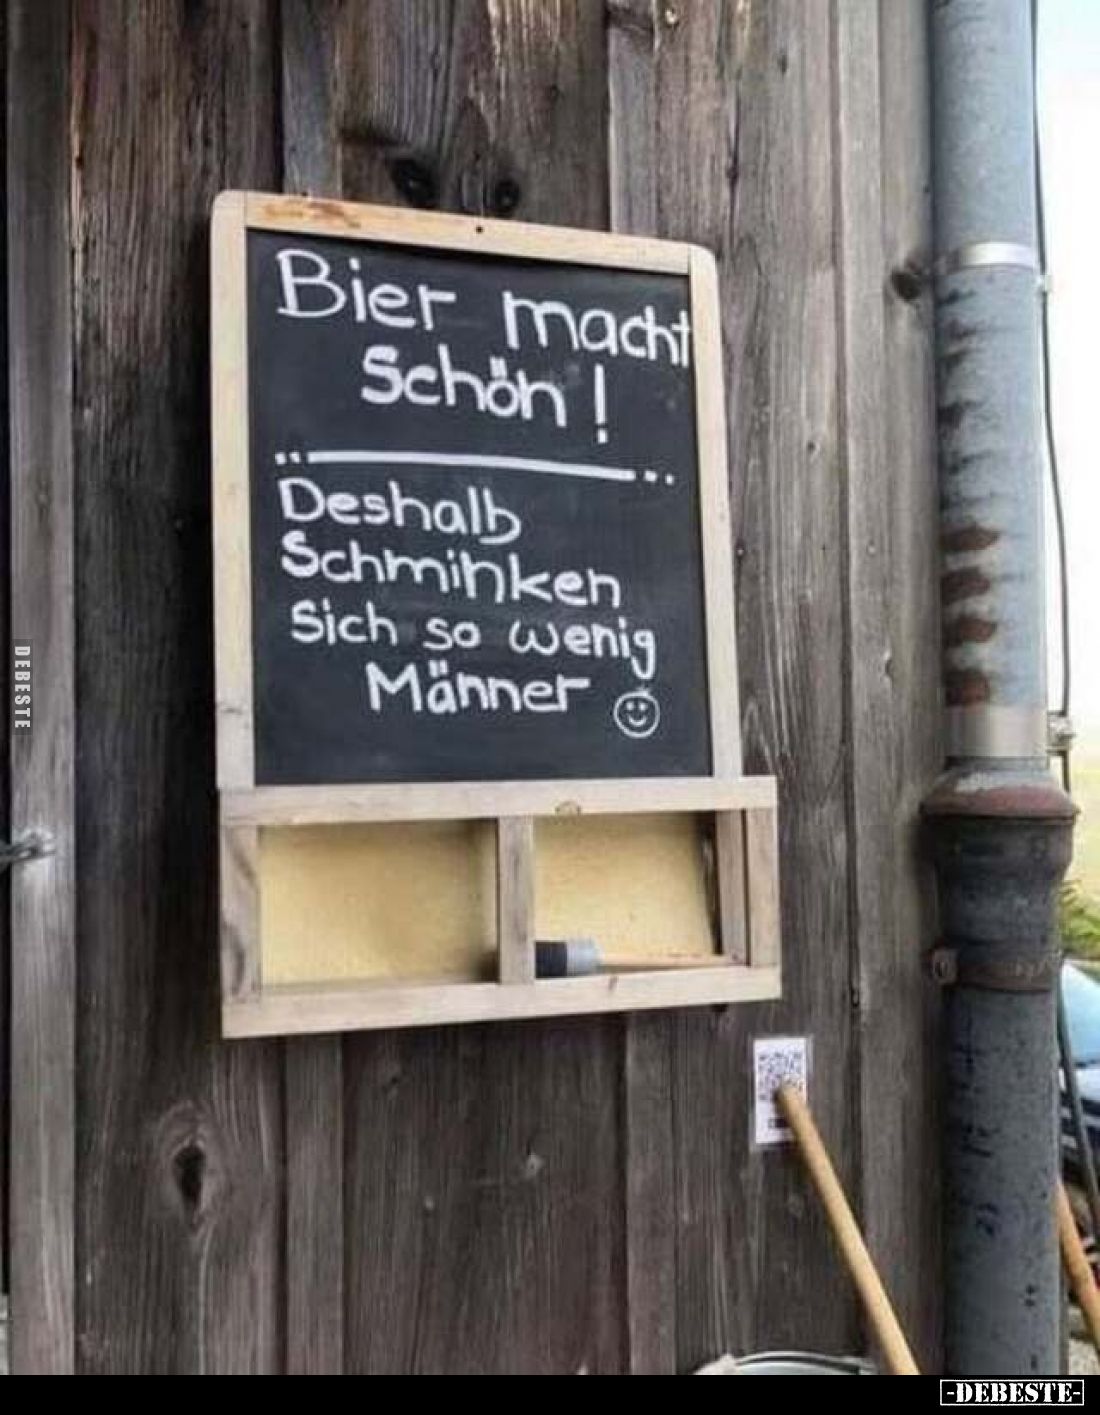 Bier macht
Schön!
Deshalb
Schminken
Sich so wenig
Männer
DEBESTE
-DEBESTE-